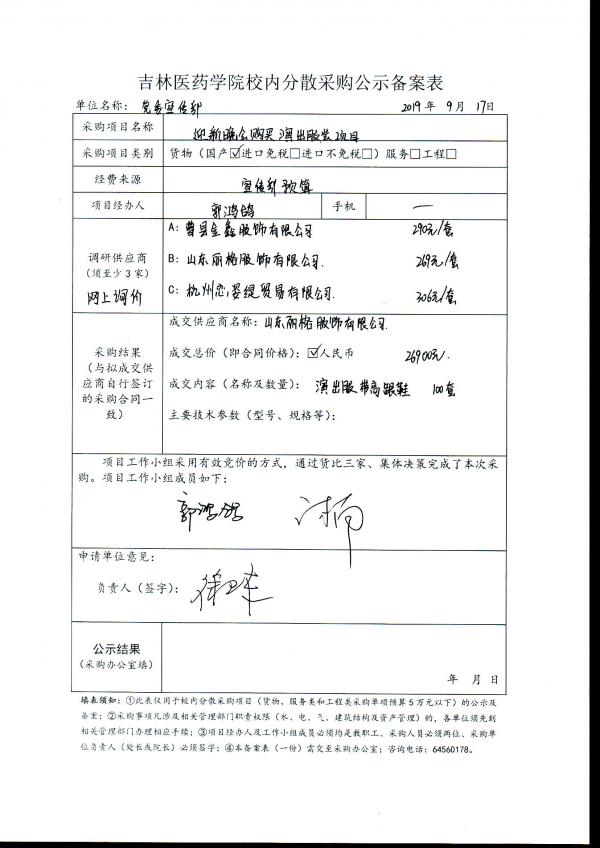 吉林医药学院校内分散采购公示备案表
单位名称：党委宣传部 2019年 9月 17日
采购项目名称 迎新晚会购买演出服装项目
采购项目类别 货物（国产☑进口免税□进口不免税□）服务□工程□
经费来源 宣传部预算
项目经办人 郭鸿鸽 手机 —
调研供应商
（须至少3家）
网上询价
A：曹县金鑫服饰有限公司 290元/套
B：山东丽格服饰有限公司. 269元/套
C：杭州恋浴缇贸易有限公司. 306元/套
采购结果
（与拟成交供
应商自行签订
的采购合同一
致）
成交供应商名称：山东丽格服饰有限公司.
成交总价（即合同价格）：☑人民币 26900元.
成交内容（名称及数量）：演出服带高跟鞋 100套
主要技术参数（型号、规格等）：
项目工作小组采用有效竞价的方式，通过货比三家、集体决策完成了本次采
购。项目工作小组成员如下：
郭鸿鸽
申请单位意见：
负责人（签字）：
公示结果
（采购办公室填）
年 月 日
填表须知：①此表仅用于校内分散采购项目（货物、服务类和工程类采购单项预算5万元以下）的公示及
备案；②采购事项凡涉及相关管理部门职责权限（水、电、气、建筑结构及资产管理）的，各单位须先到
相关管理部门办理相应手续；③项目经办人及工作小组成员必须均是教职工、采购人员必须两位、采购单
位负责人（处长或院长）必须签字；④本备案表（一份）需交至采购办公室；咨询电话：64560178。